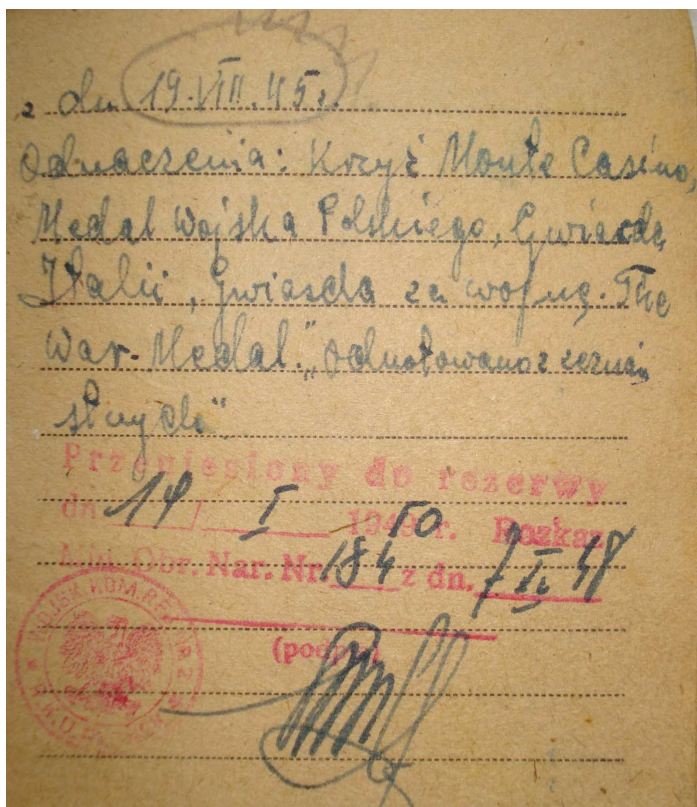 z dn. 19.VIII.45r.
Odznaczenia: Krzyż Monte Casino,
Medal Wojska Polskiego, Gwiazda
Italii, Gwiazda za wojnę. The
War-Medal. "Odnotowano z zeznań
słuych".
Przeniesiony do rezerwy
dn. 14 / I 1949 50 r. Rozkaz
Min. Obr. Nar. Nr. 184 z dn. 7 I 48
(podpis)
WOJSK. KOM. REJ.